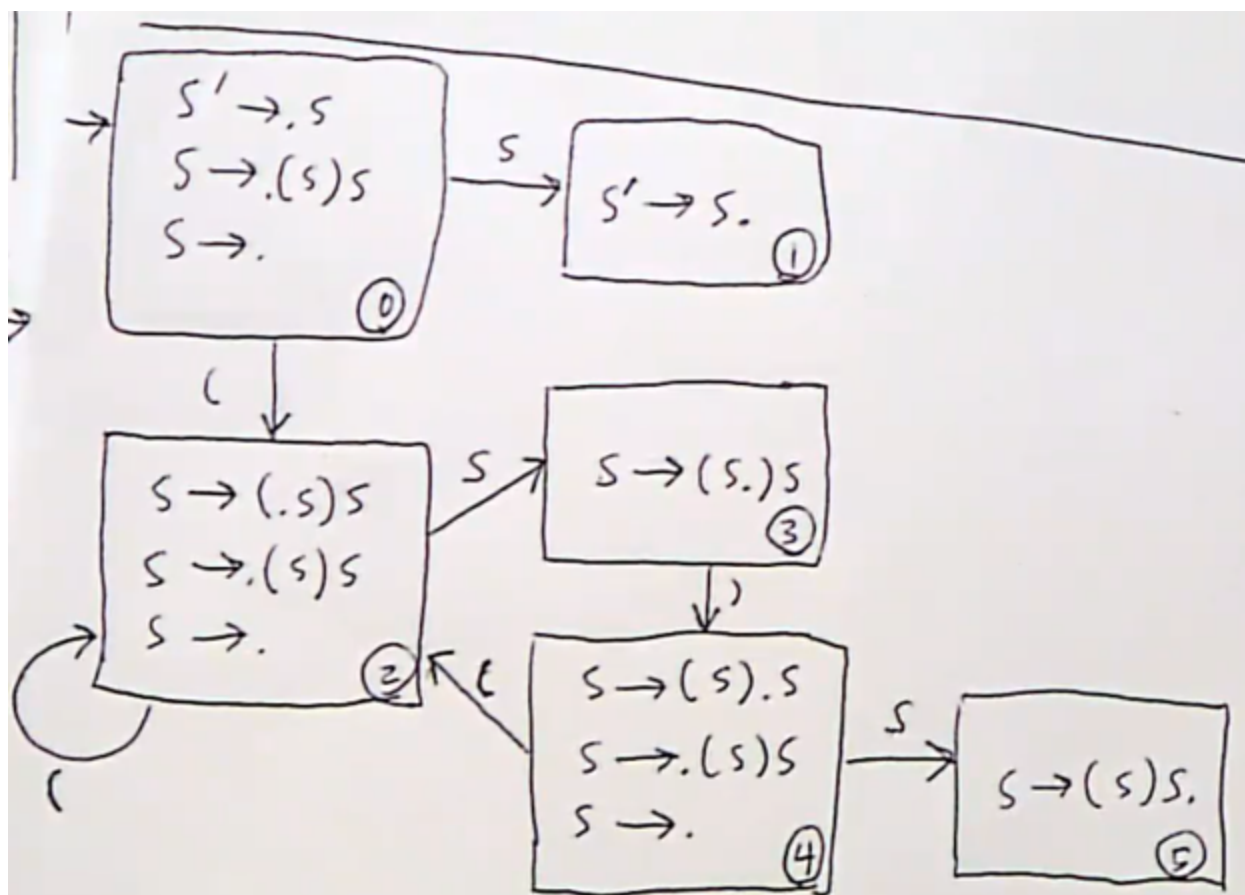 S' → .S
S → .(S)S
S → .
0
S
S' → S.
1
(
S → (.S)S
S → .(S)S
S → .
2
S
S → (S.)S
3
)
(
(
S → (S).S
S → .(S)S
S → .
4
S
S → (S)S.
5